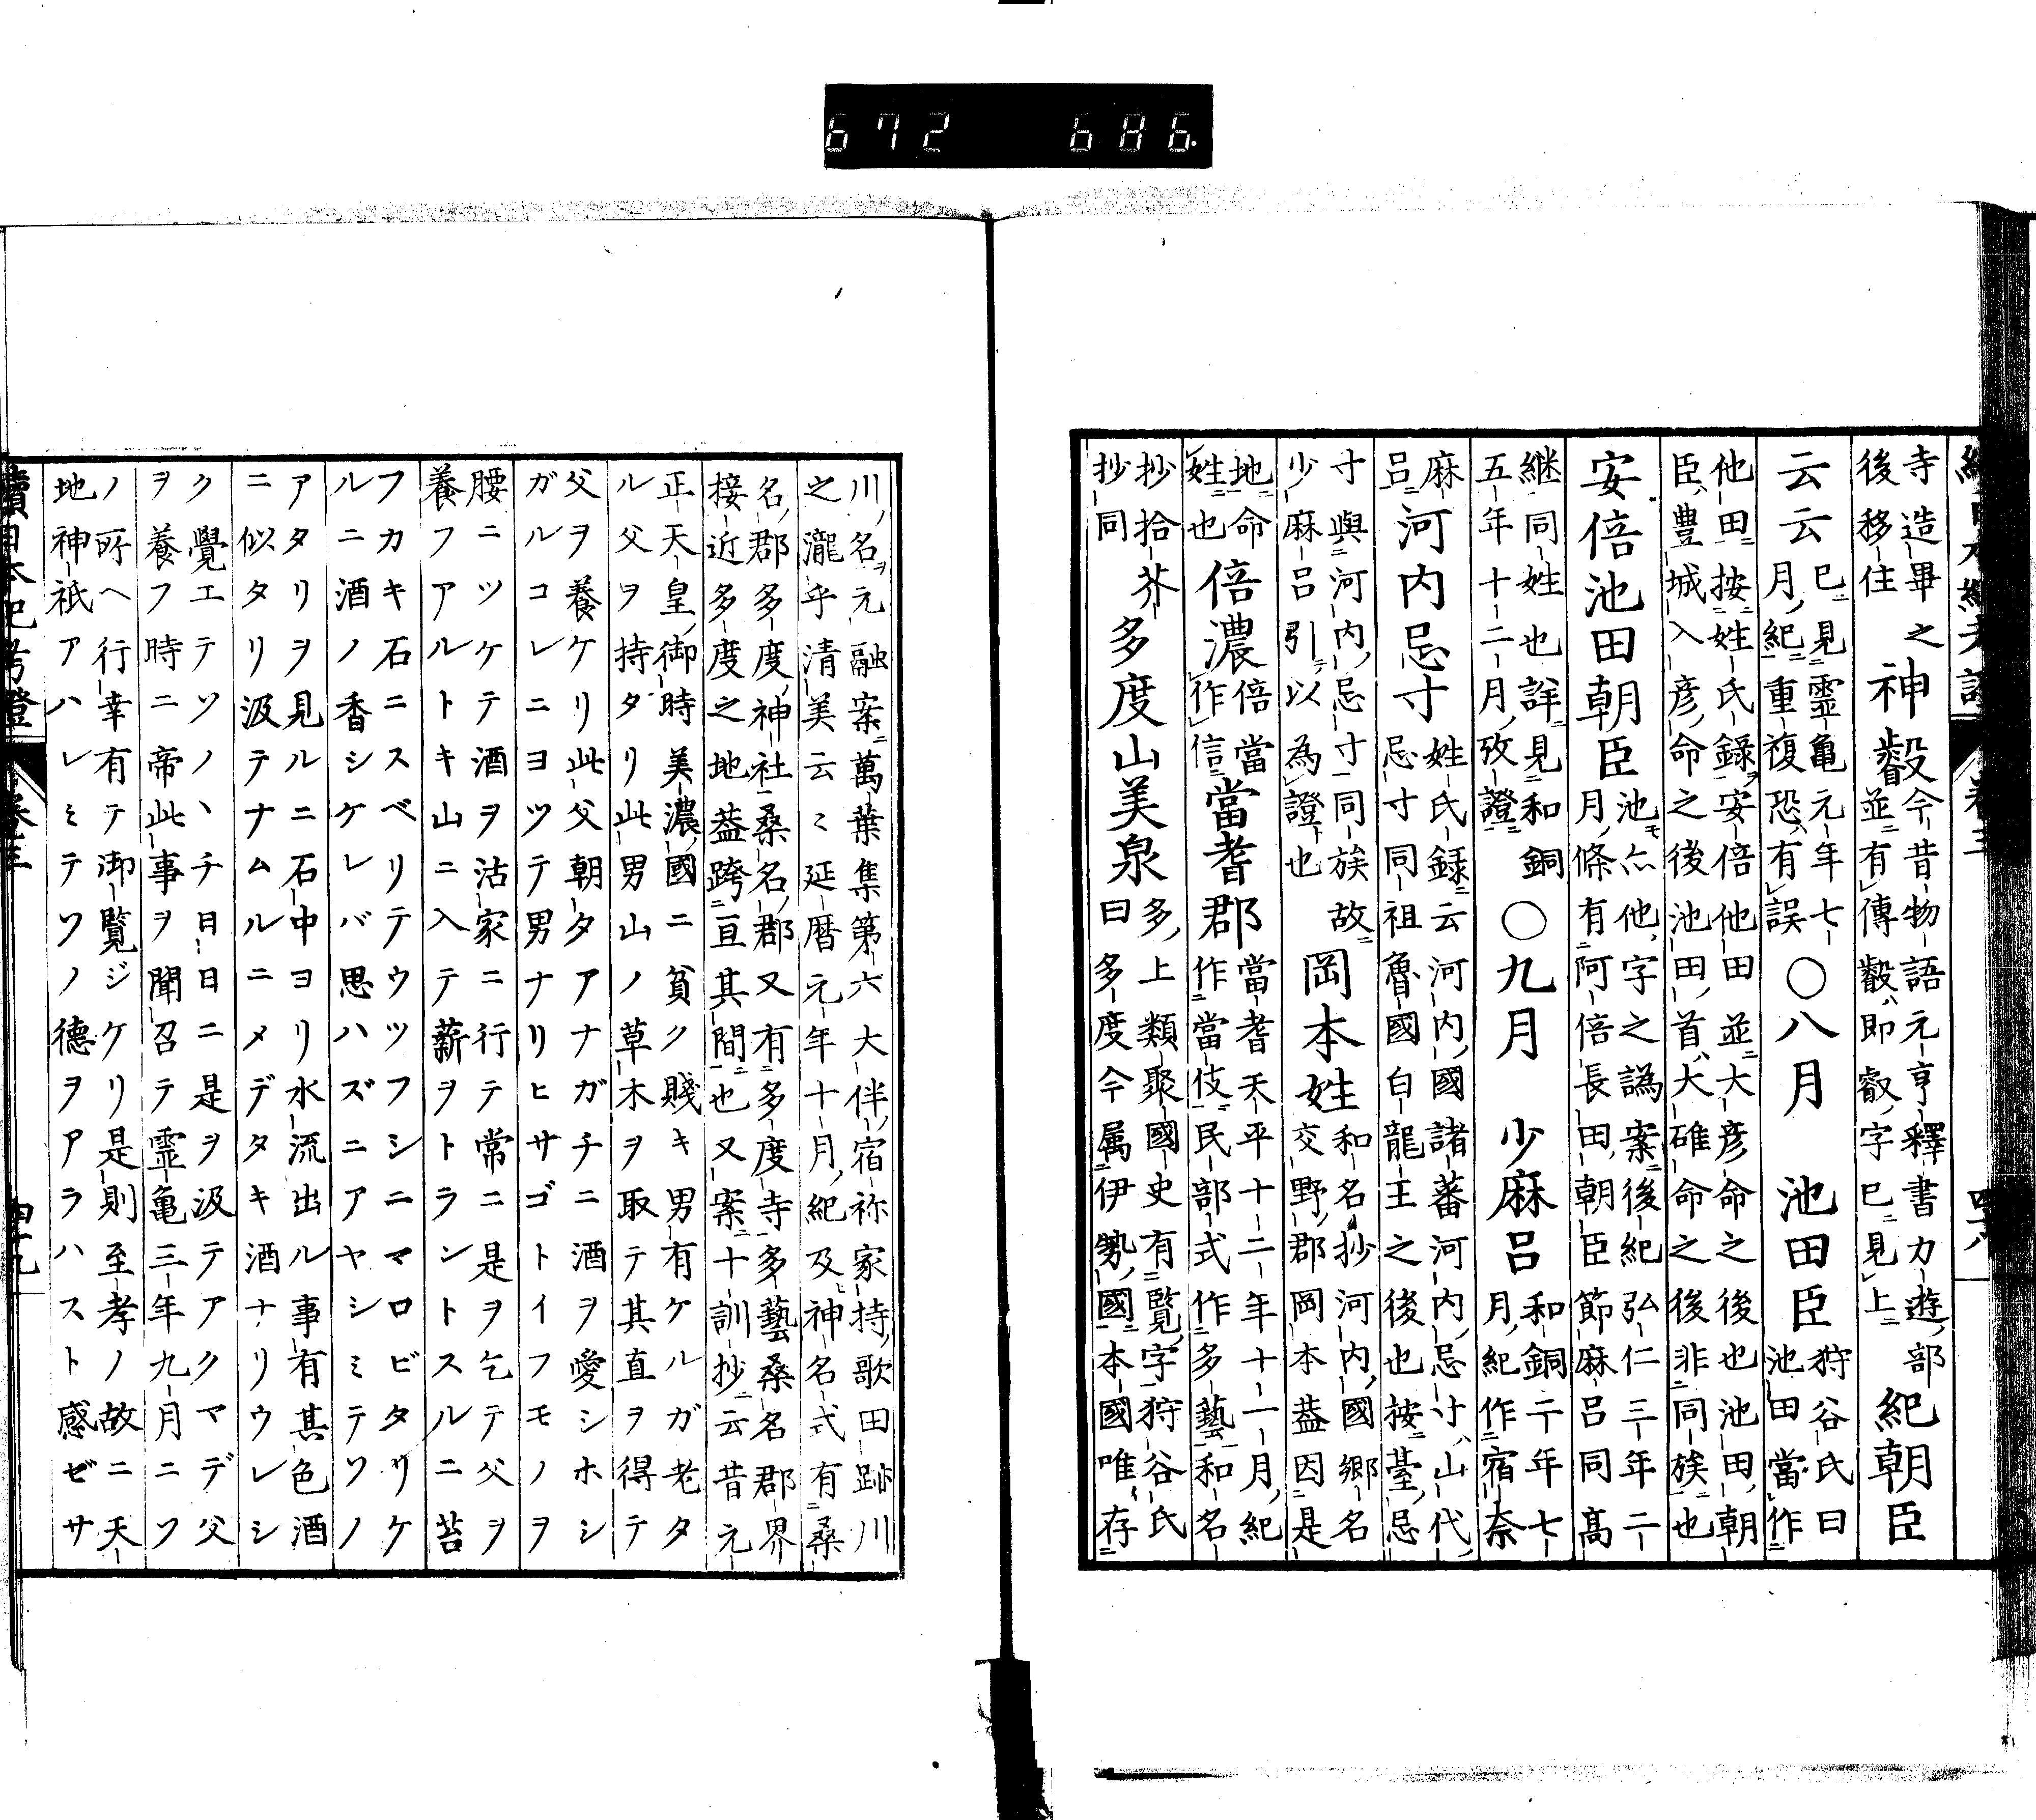 672 686
寺造畢之
後移住
神叡
今昔物語元亨釋書力遊部
並有傳叡即叡字已見上
紀朝臣
云云
已見靈亀元年七
月紀重複恐有誤
〇八月 池田臣
狩谷氏曰
池田當作
他田按姓氏録安倍他田並大彦命之後也池田朝
臣豊城入彦命之後池田首大碓命之後非同族也
安倍池田朝臣
池亦他字之譌案後紀弘仁三年二
月條有阿倍長田朝臣節麻呂同高
継同姓也詳見和銅
五年十二月攷證
〇九月 少麻呂
和銅二年七
月紀作宿奈
麻
呂
河内忌寸
姓氏録云河内國諸蕃河内忌寸山代
忌寸同祖魯國白龍王之後也按臺忌
寸與河内忌寸同族故
少麻呂引以為證也
岡本姓
和名抄河内國郷名
交野郡岡本葢因是
地命
姓也
倍濃
倍當
作信
當耆郡
當耆天平十二年十一月紀
作當伎民部式作多藝和名
抄拾芥
抄同
多度山美泉
多上類聚國史有覧字狩谷氏
曰多度今属伊勢國本國唯存
川名元融案萬葉集第六大伴宿祢家持歌田跡川
之瀧乎清美云々延暦元年十月紀及神名式有桑
名郡多度神社桑名郡又有多度寺多藝桑名郡界
接近多度之地葢跨亘其間也又案十訓抄云昔元
正天皇御時美濃國ニ貧ク賤キ男有ケルガ老タ
ル父ヲ持タリ此男山ノ草木ヲ取テ其直ヲ得テ
父ヲ養ケリ此父朝夕アナガチニ酒ヲ愛シホシ
ガルコレニヨツテ男ナリヒサゴトイフモノヲ
腰ニツケテ酒ヲ沽家ニ行テ常ニ是ヲ乞テ父ヲ
養フアルトキ山ニ入テ薪ヲトラントスルニ苔
フカキ石ニスベリテウツフシニマロビタリケ
ルニ酒ノ香シケレバ思ハズニアヤシミテソノ
アタリヲ見ルニ石中ヨリ水流出ル事有其色酒
ニ似タリ汲テナムルニメデタキ酒ナリウレシ
ク覺エテソノヽチ日日ニ是ヲ汲テアクマデ父
ヲ養フ時ニ帝此事ヲ聞召テ霊亀三年九月ニソ
ノ所ヘ行幸有テ御覧ジケリ是則至孝ノ故ニ天
地神祇アハレミテソノ德ヲアラハスト感ゼサ
續日本紀考證 卷三 四十九